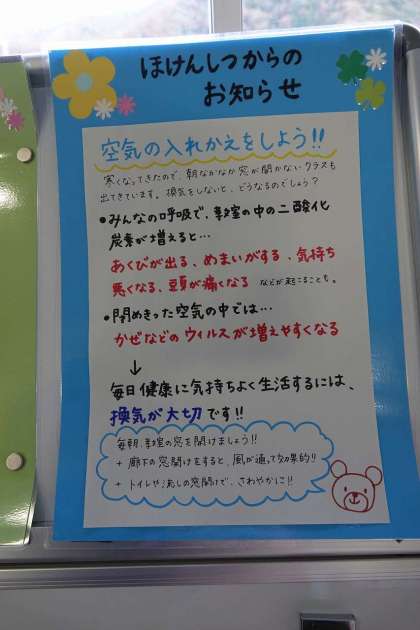 ほけんしつからの
お知らせ
空気の入れかえをしよう!!
寒くなってきたので、朝なかなか窓が開かないクラスも
出てきています。換気をしないと、どうなるのでしょう?
●みんなの呼吸で、教室の中の二酸化
炭素が増えると…
あくびが出る、めまいがする、気持ち
悪くなる、頭が痛くなる などが起こることも。
●閉めきった空気の中では…
かぜなどのウイルスが増えやすくなる
↓
毎日健康に気持ちよく生活するには、
換気が大切です!!
毎朝、教室の窓を開けましょう!!
+ 廊下の窓開けをすると、風が通って効果的!!
+ トイレや流しの窓開けで、さわやかに!!